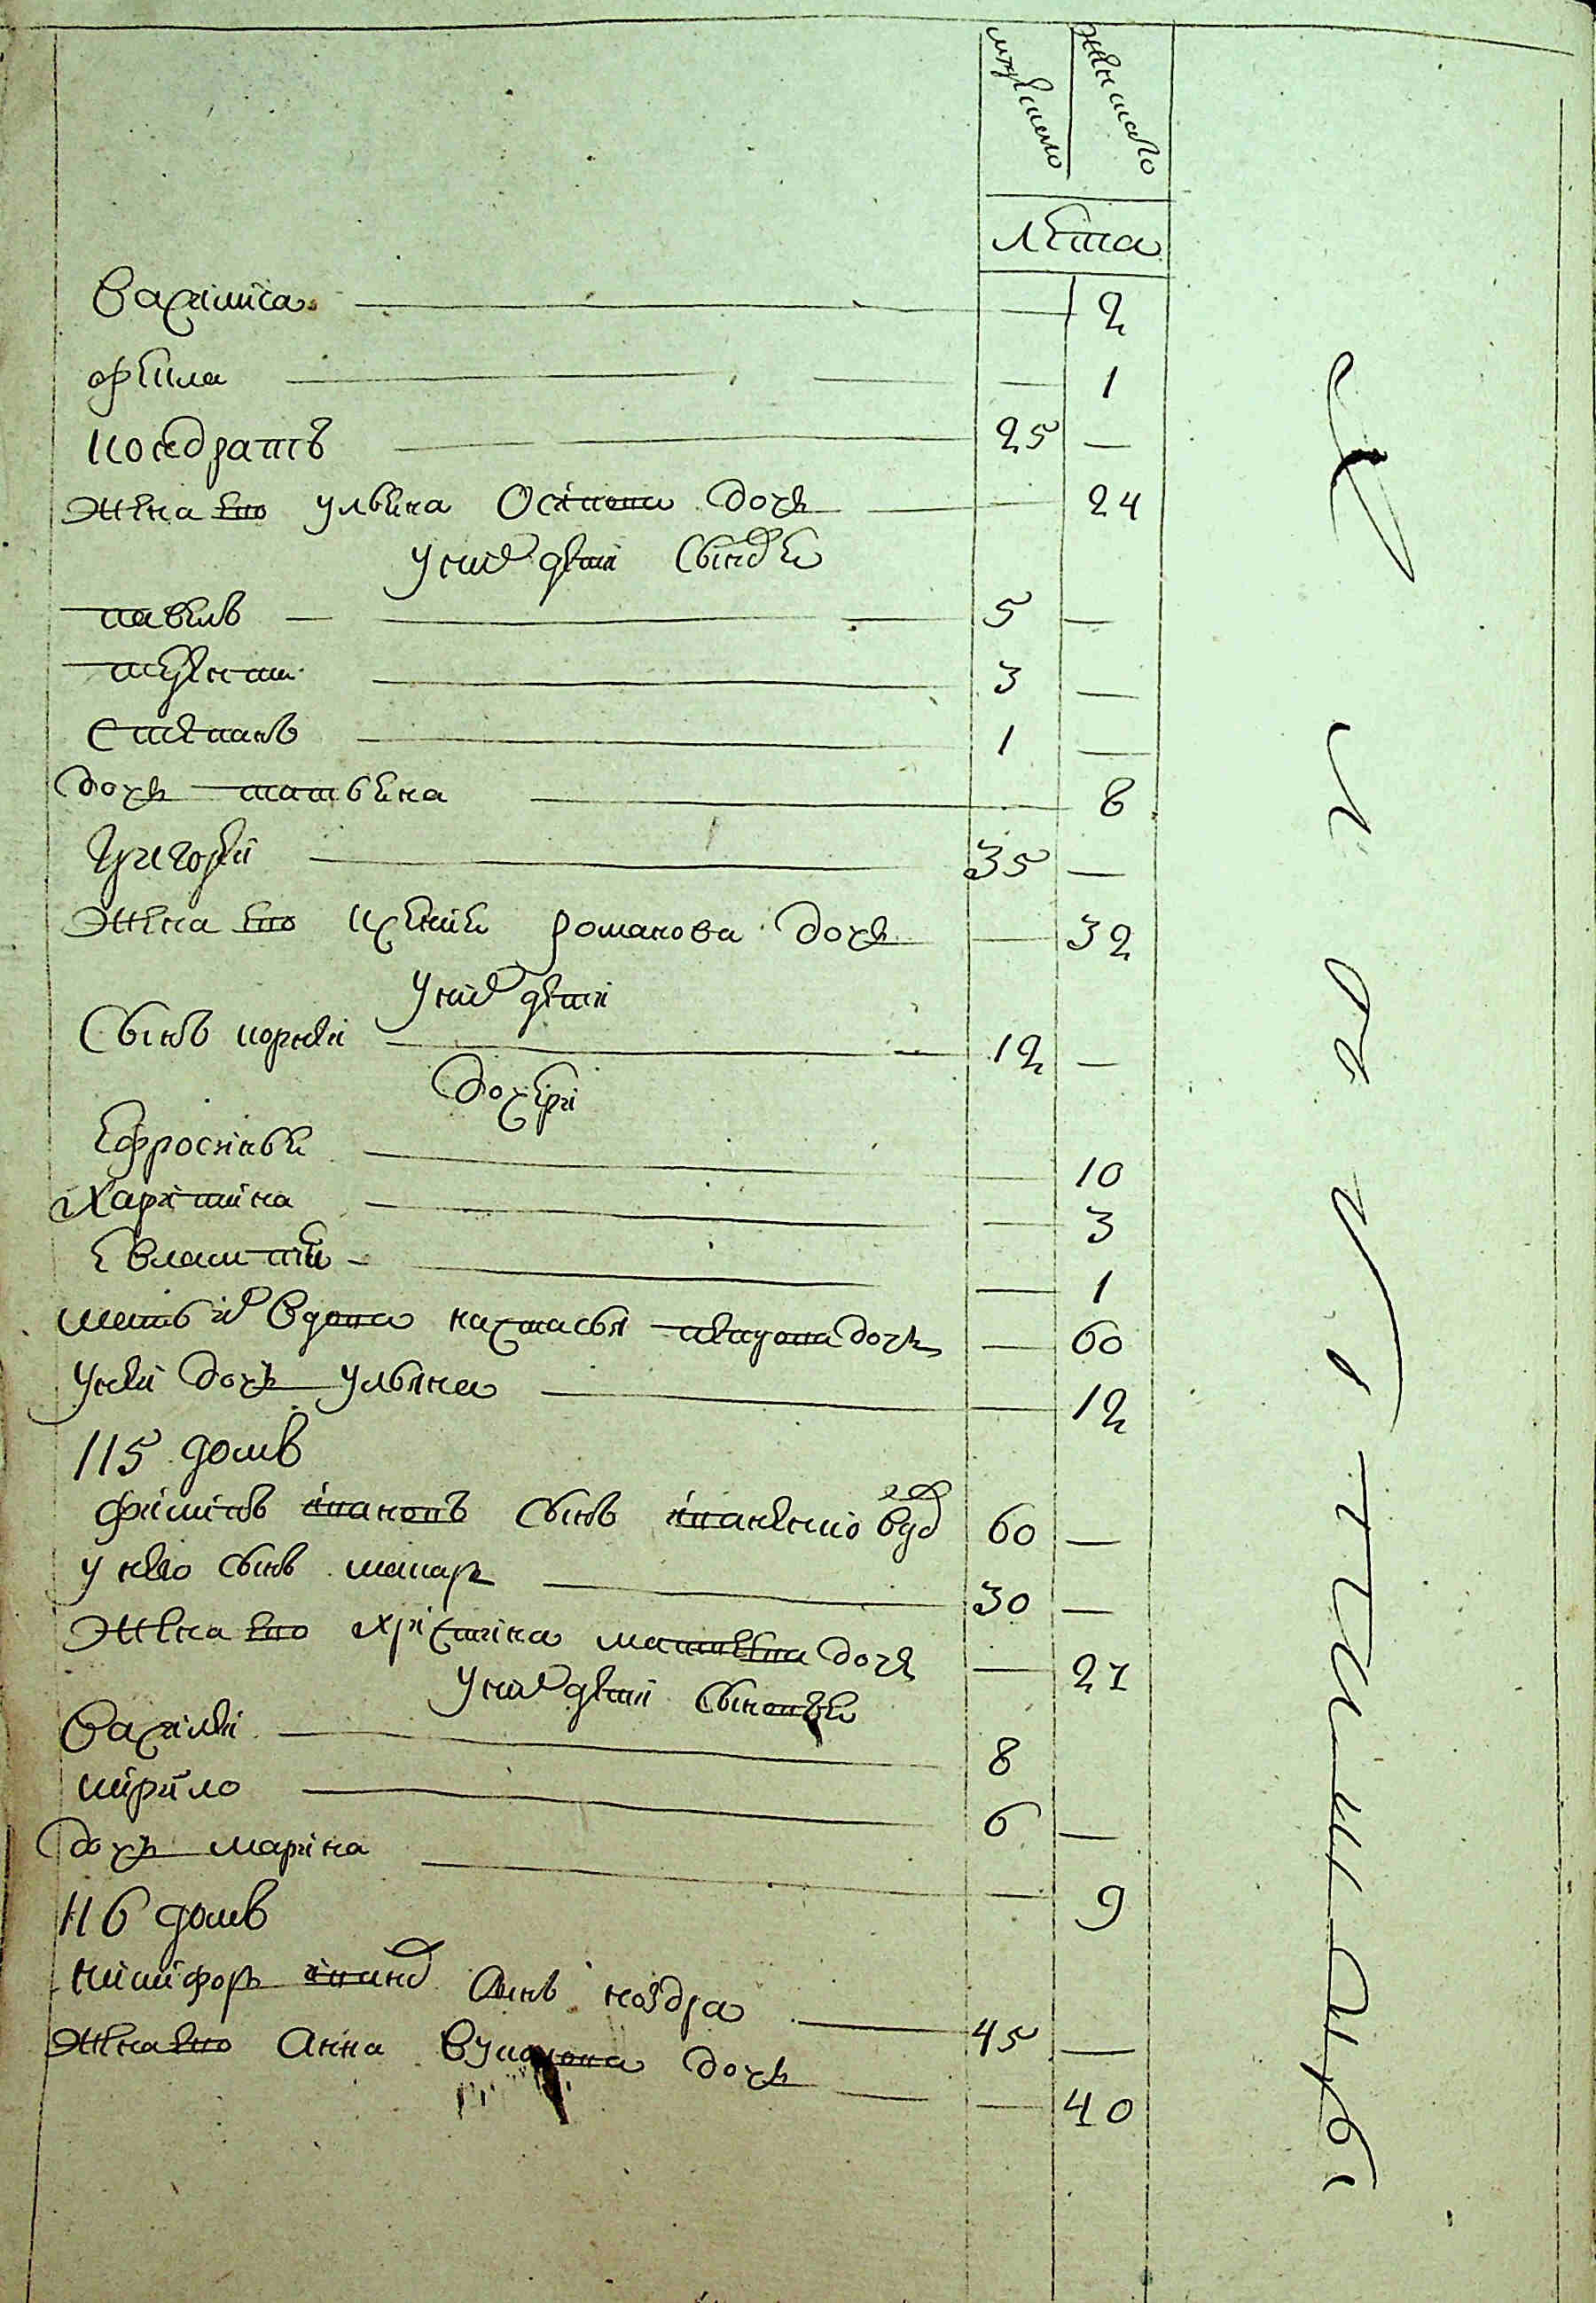 мужеска
женска
лѣта
Василіса 2
Фекла 1
кондратъ 25 —
жена его Ульяна Осипова дочь — 24
у них дѣти сыновья
павелъ — 5 —
терентей 3 —
степанъ 1 —
дочь татьяна 8
Григорей 35 —
жена его романова дочь — 32
у них дѣти
сынъ корней 12 —
дочери
Ефросинья — 10
Харитина — 3
Евлампия — 1
мать их вдова настасья дочь — 60
у ней дочь ульяна — 12
115 домъ
Филипъ ивановъ сынъ иваненко вдов 60 —
у него сынъ макаръ 30 —
жена его христина матвеева дочь — 27
у них дѣти сыновья
Василей 8
кирило 6 —
дочь марина — 9
116 домъ
никифоръ иванов сынъ ноздра 45 —
жена его анна дочь — 40